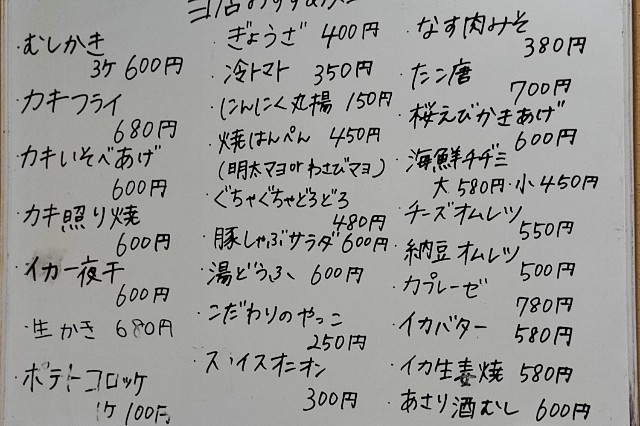 当店おすすめメニュー
・むしかき
3ケ 600円
・カキフライ
680円
・カキいそべあげ
600円
・カキ照り焼
600円
・イカ一夜干
600円
・生かき 680円
・ポテトコロッケ
1ケ 100円
・ぎょうざ 400円
・冷トマト 350円
・にんにく丸揚 150円
・焼はんぺん 450円
(明太マヨorわさびマヨ)
・ぐちゃぐちゃどろどろ
480円
・豚しゃぶサラダ 600円
・湯どうふ 600円
・こだわりのやっこ
250円
・スライスオニオン
300円
・なす肉みそ
380円
・たこ唐
700円
・桜えびかきあげ
600円
・海鮮チヂミ
大 580円・小 450円
・チーズオムレツ
550円
・納豆オムレツ
500円
・カプレーゼ
780円
・イカバター 580円
・イカ生姜焼 580円
・あさり酒むし 600円